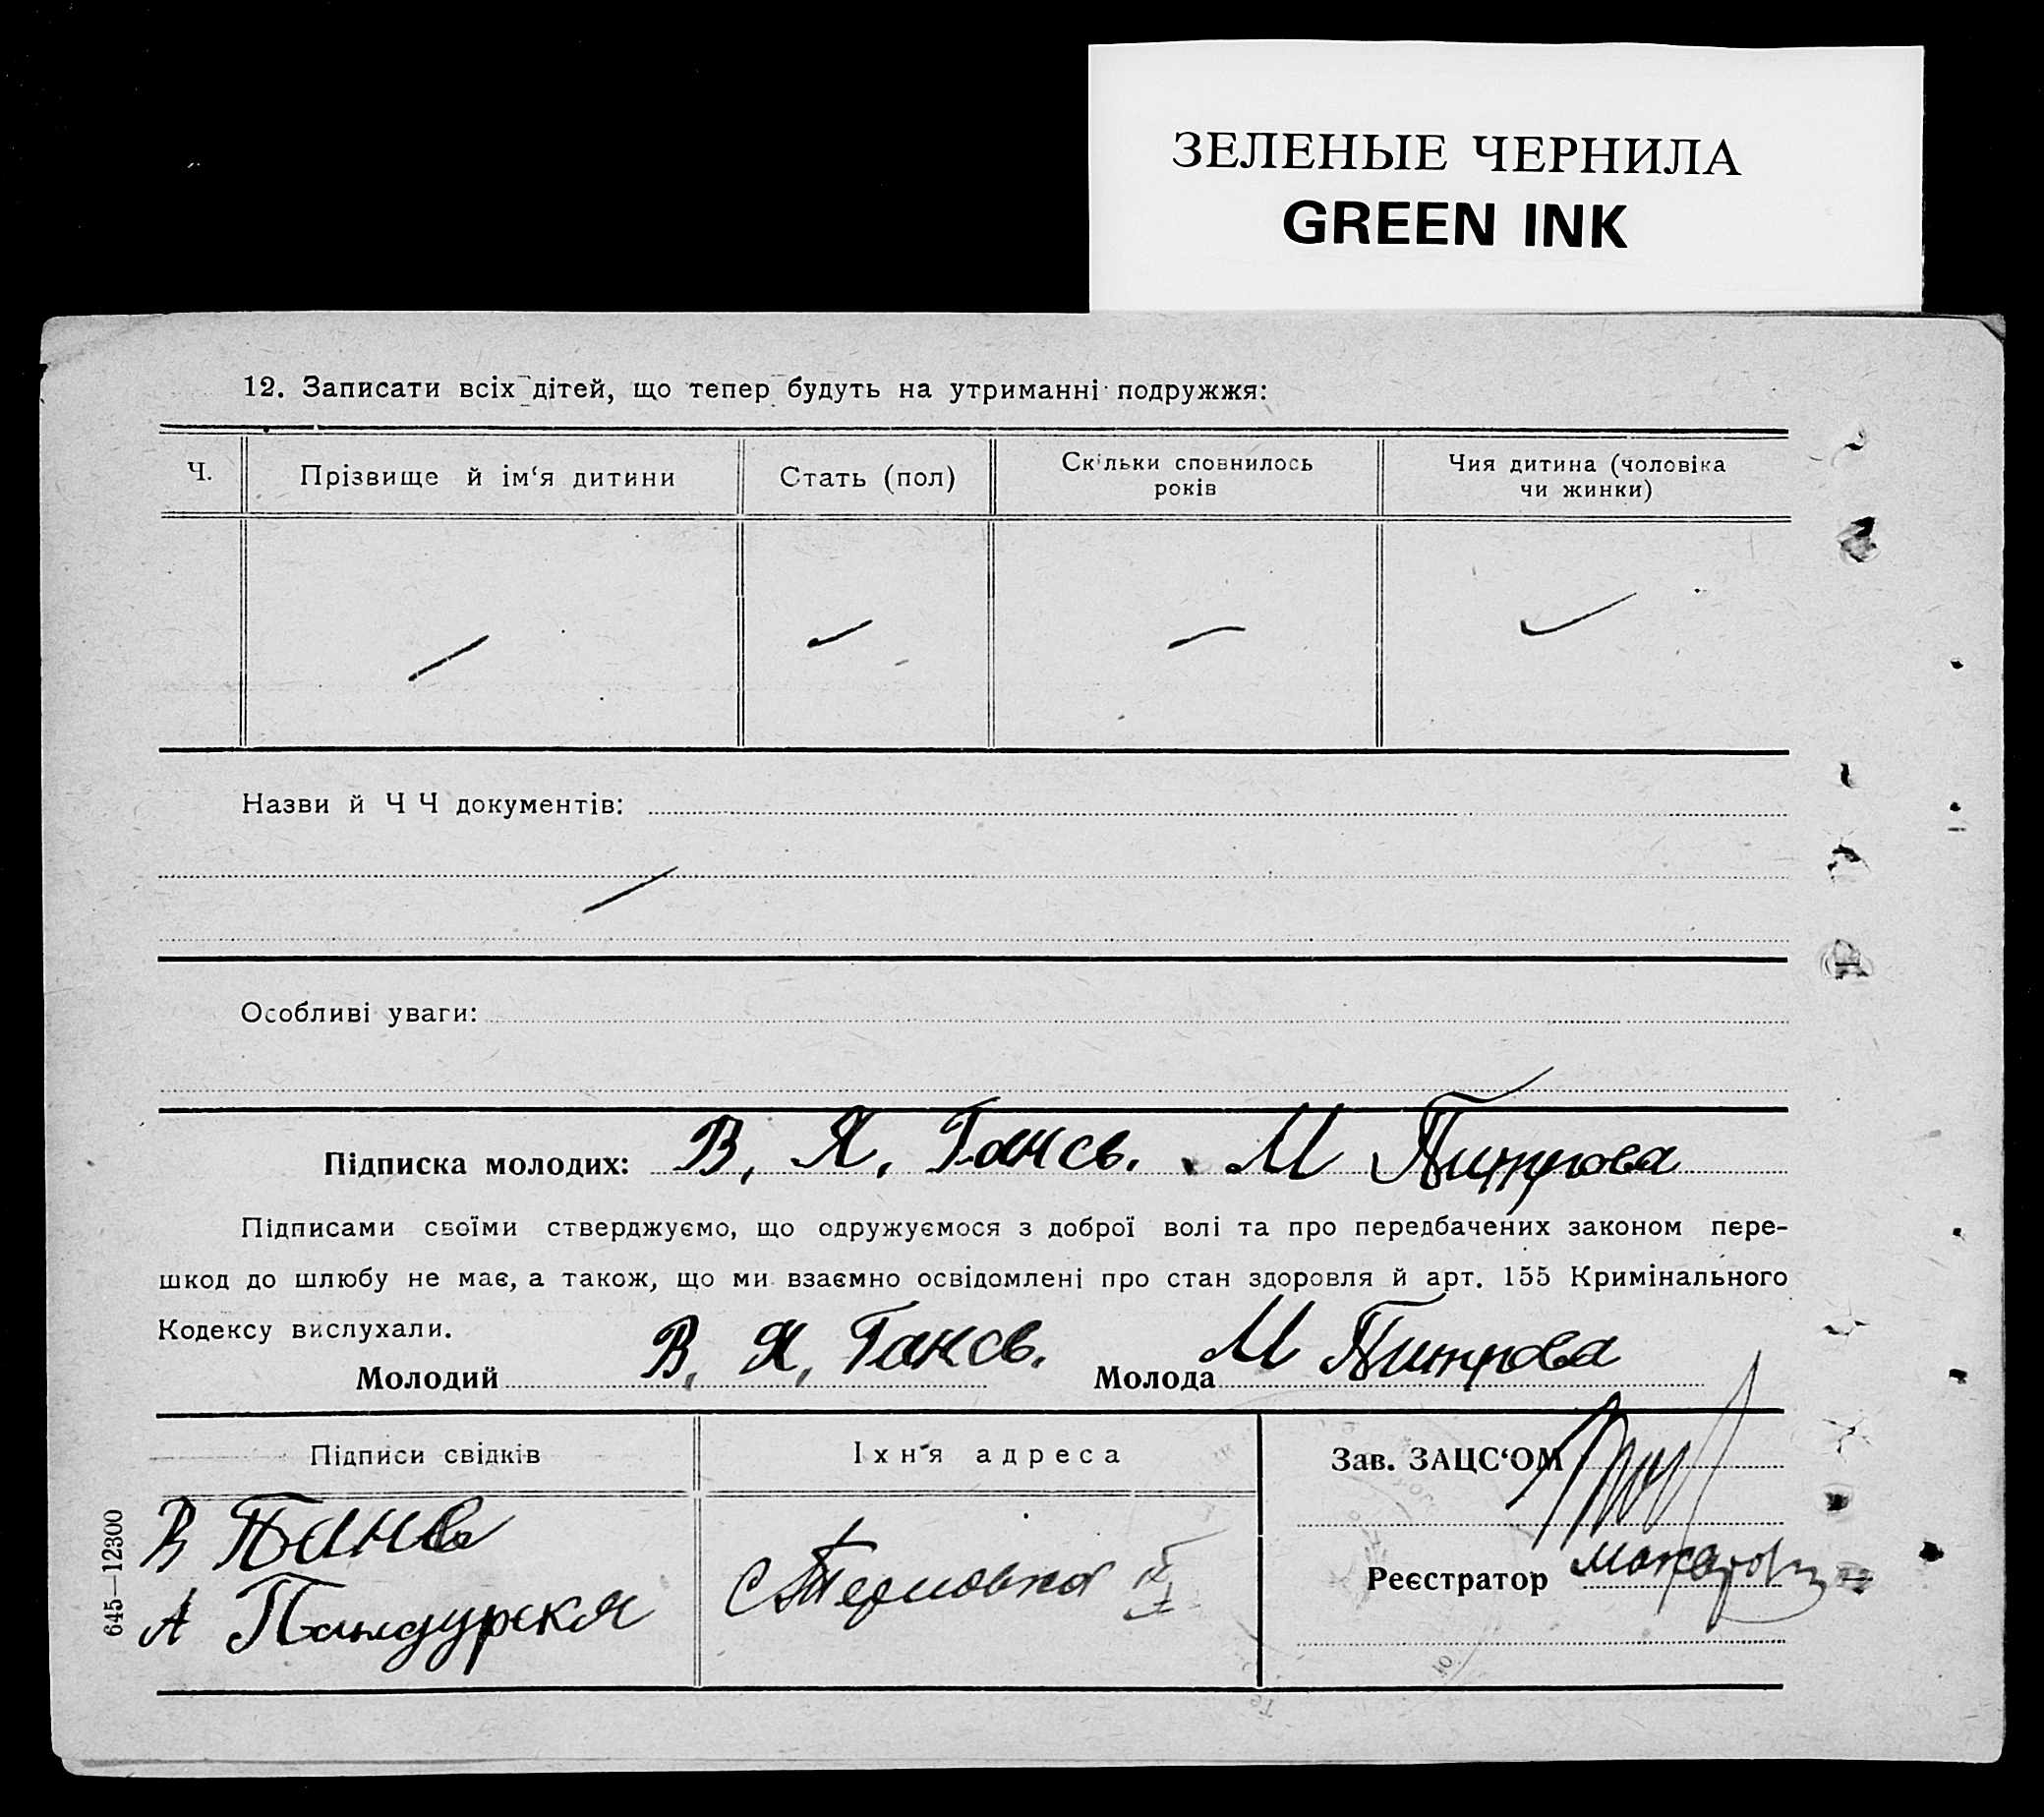 ЗЕЛЕНЫЕ ЧЕРНИЛА
GREEN INK
12. Записати всіх дітей, що тепер будуть на утриманні подружжя:
Ч.
Прізвище й ім‘я дитини
Стать (пол)
Скільки сповнилось
років
Чия дитина (чоловіка
чи жинки)
Назви й Ч Ч документів:
Особливі уваги:
Підписка молодих: В. Я. Гансв. М Питрова
Підписами своїми стверджуємо, що одружуємося з доброї волі та про передбачених законом пере-
шкод до шлюбу не має, а також, що ми взаємно освідомлені про стан здоровля й арт. 155 Кримінального
Кодексу вислухали.
Молодий В. Я. Гансв. Молода М Питрова
Підписи свідків
Їхн‘я адреса
Зав. ЗАЦС‘ОМ
А Пандурскя
С Терновка
Реєстратор
645—12300